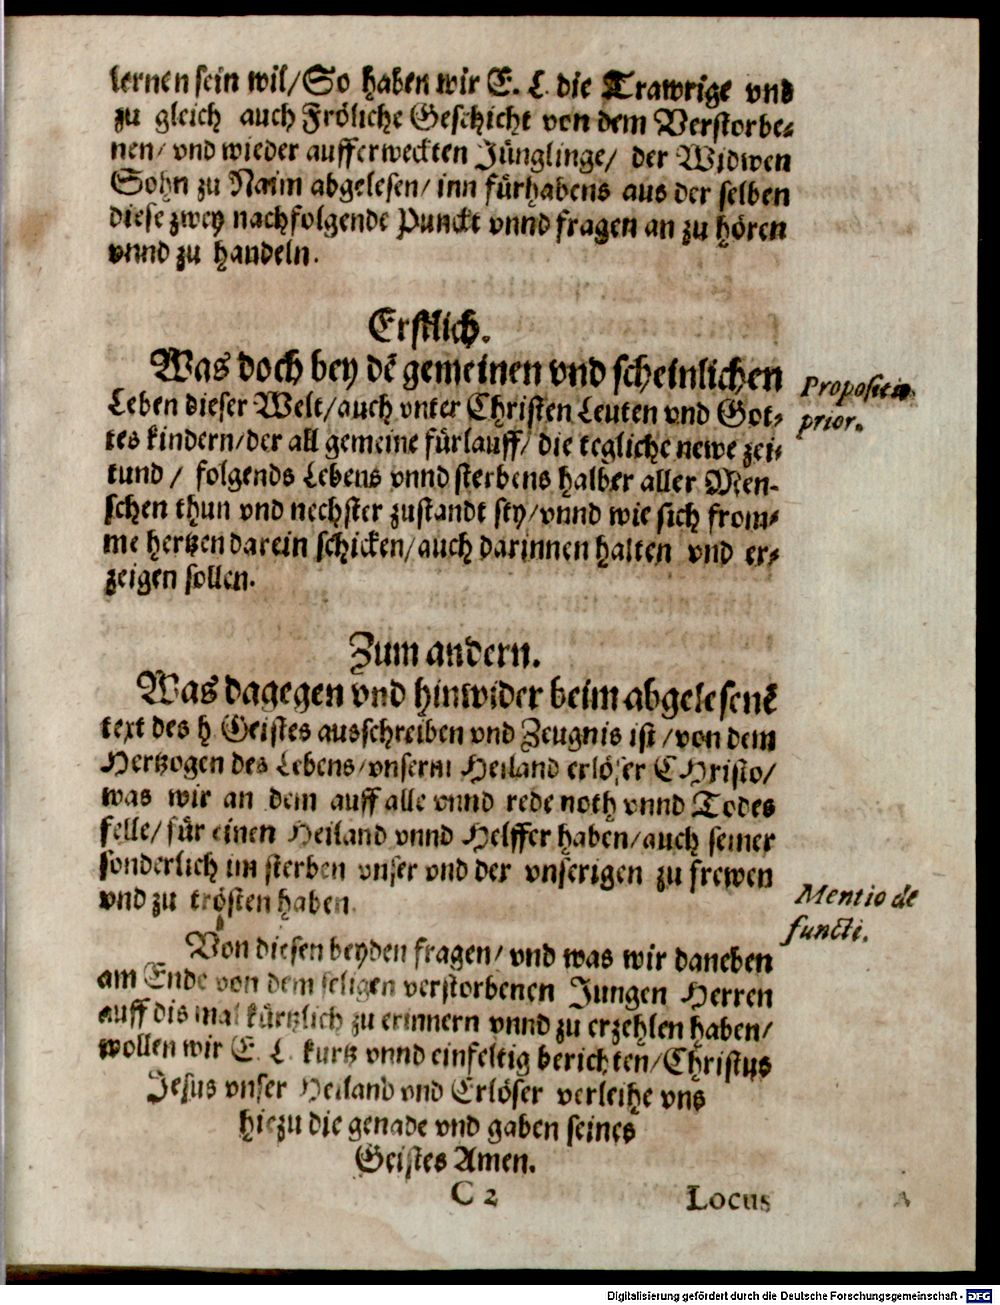 lernen sein wil/So haben wir E. L. die Trawrige vnd
zu gleich auch Fröliche Geschicht von dem Verstorbe⸗
nen/ vnd wieder aufferweckten Jünglinge/ der Widwen
Sohn zu Naim abgelesen/ inn fürhabens aus der selben
diese zwey nachfolgende Punckt vnnd fragen an zu hören
vnnd zu handeln.
Erstlich.
Was doch bey dē gemeinen vnd scheinlichen
Leben dieser Welt/auch vnter Christen Leuten vnd Got⸗
tes kindern/der all gemeine fürlauff/ die tegliche newe zei⸗
tund / folgends Lebens vnnd sterbens halber aller Men-
schen thun vnd nechster zustandt sey/vnnd wie sich from⸗
me hertzen darein schicken/auch darinnen halten vnd er⸗
zeigen sollen.
Propositio
prior.
Zum andern.
Was dagegen vnd hinwider beim abgelesenē
text des h Geistes ausschreiben vnd Zeugnis ist /von dem
Hertzogen des Lebens/vnserm Heiland erlöser CHristo/
was wir an dem auff alle vnnd rede noth vnnd Todes
felle/für einen Heiland vnnd Helffer haben/auch seiner
sonderlich im sterben vnser vnd der vnserigen zu frewen
vnd zu trösten haben.
Mentio de
functi.
Von diesen beyden fragen/ vnd was wir daneben
am Ende von dem seligen verstorbenen Jungen Herren
auff dis mal kürtzlich zu erinnern vnnd zu erzehlen haben/
wollen wir E. L. kurtz vnnd einfeltig berichten/Christus
Jesus vnser Heiland vnd Erlöser verleihe vns
hiezu die genade vnd gaben seines
Geistes Amen.
C 2
Locus
Digitalisierung gefördert durch die Deutsche Forschungsgemeinschaft - DFG